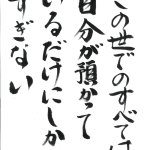 この世でのすべては
自分が預かって
いるだけにしか
すぎない